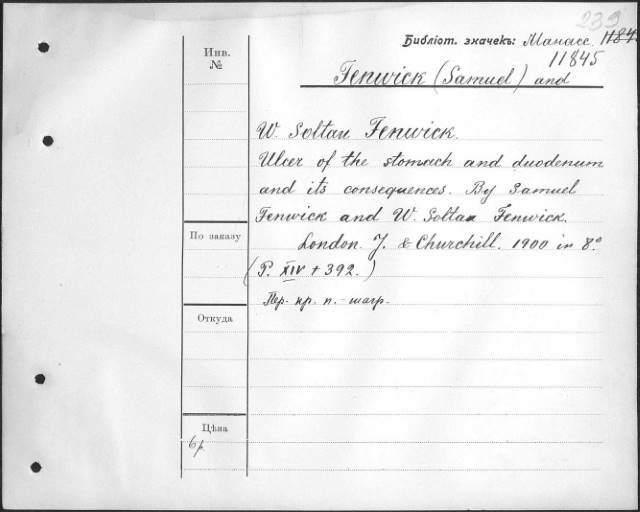 239
Библіот. значекъ: Манасс. 1184
11845
Инв.
№
Fenwick (Samuel) and
W. Soltau Fenwick.
Ulcer of the stomach and duodenum
and its consequences. By Samuel
Fenwick and W. Soltau Fenwick.
По заказу
London. J. & Churchill. 1900 in 8.°
(P. XIV + 392.)
Пер. кр. п.-шагр.
Откуда
Цѣна
6р.